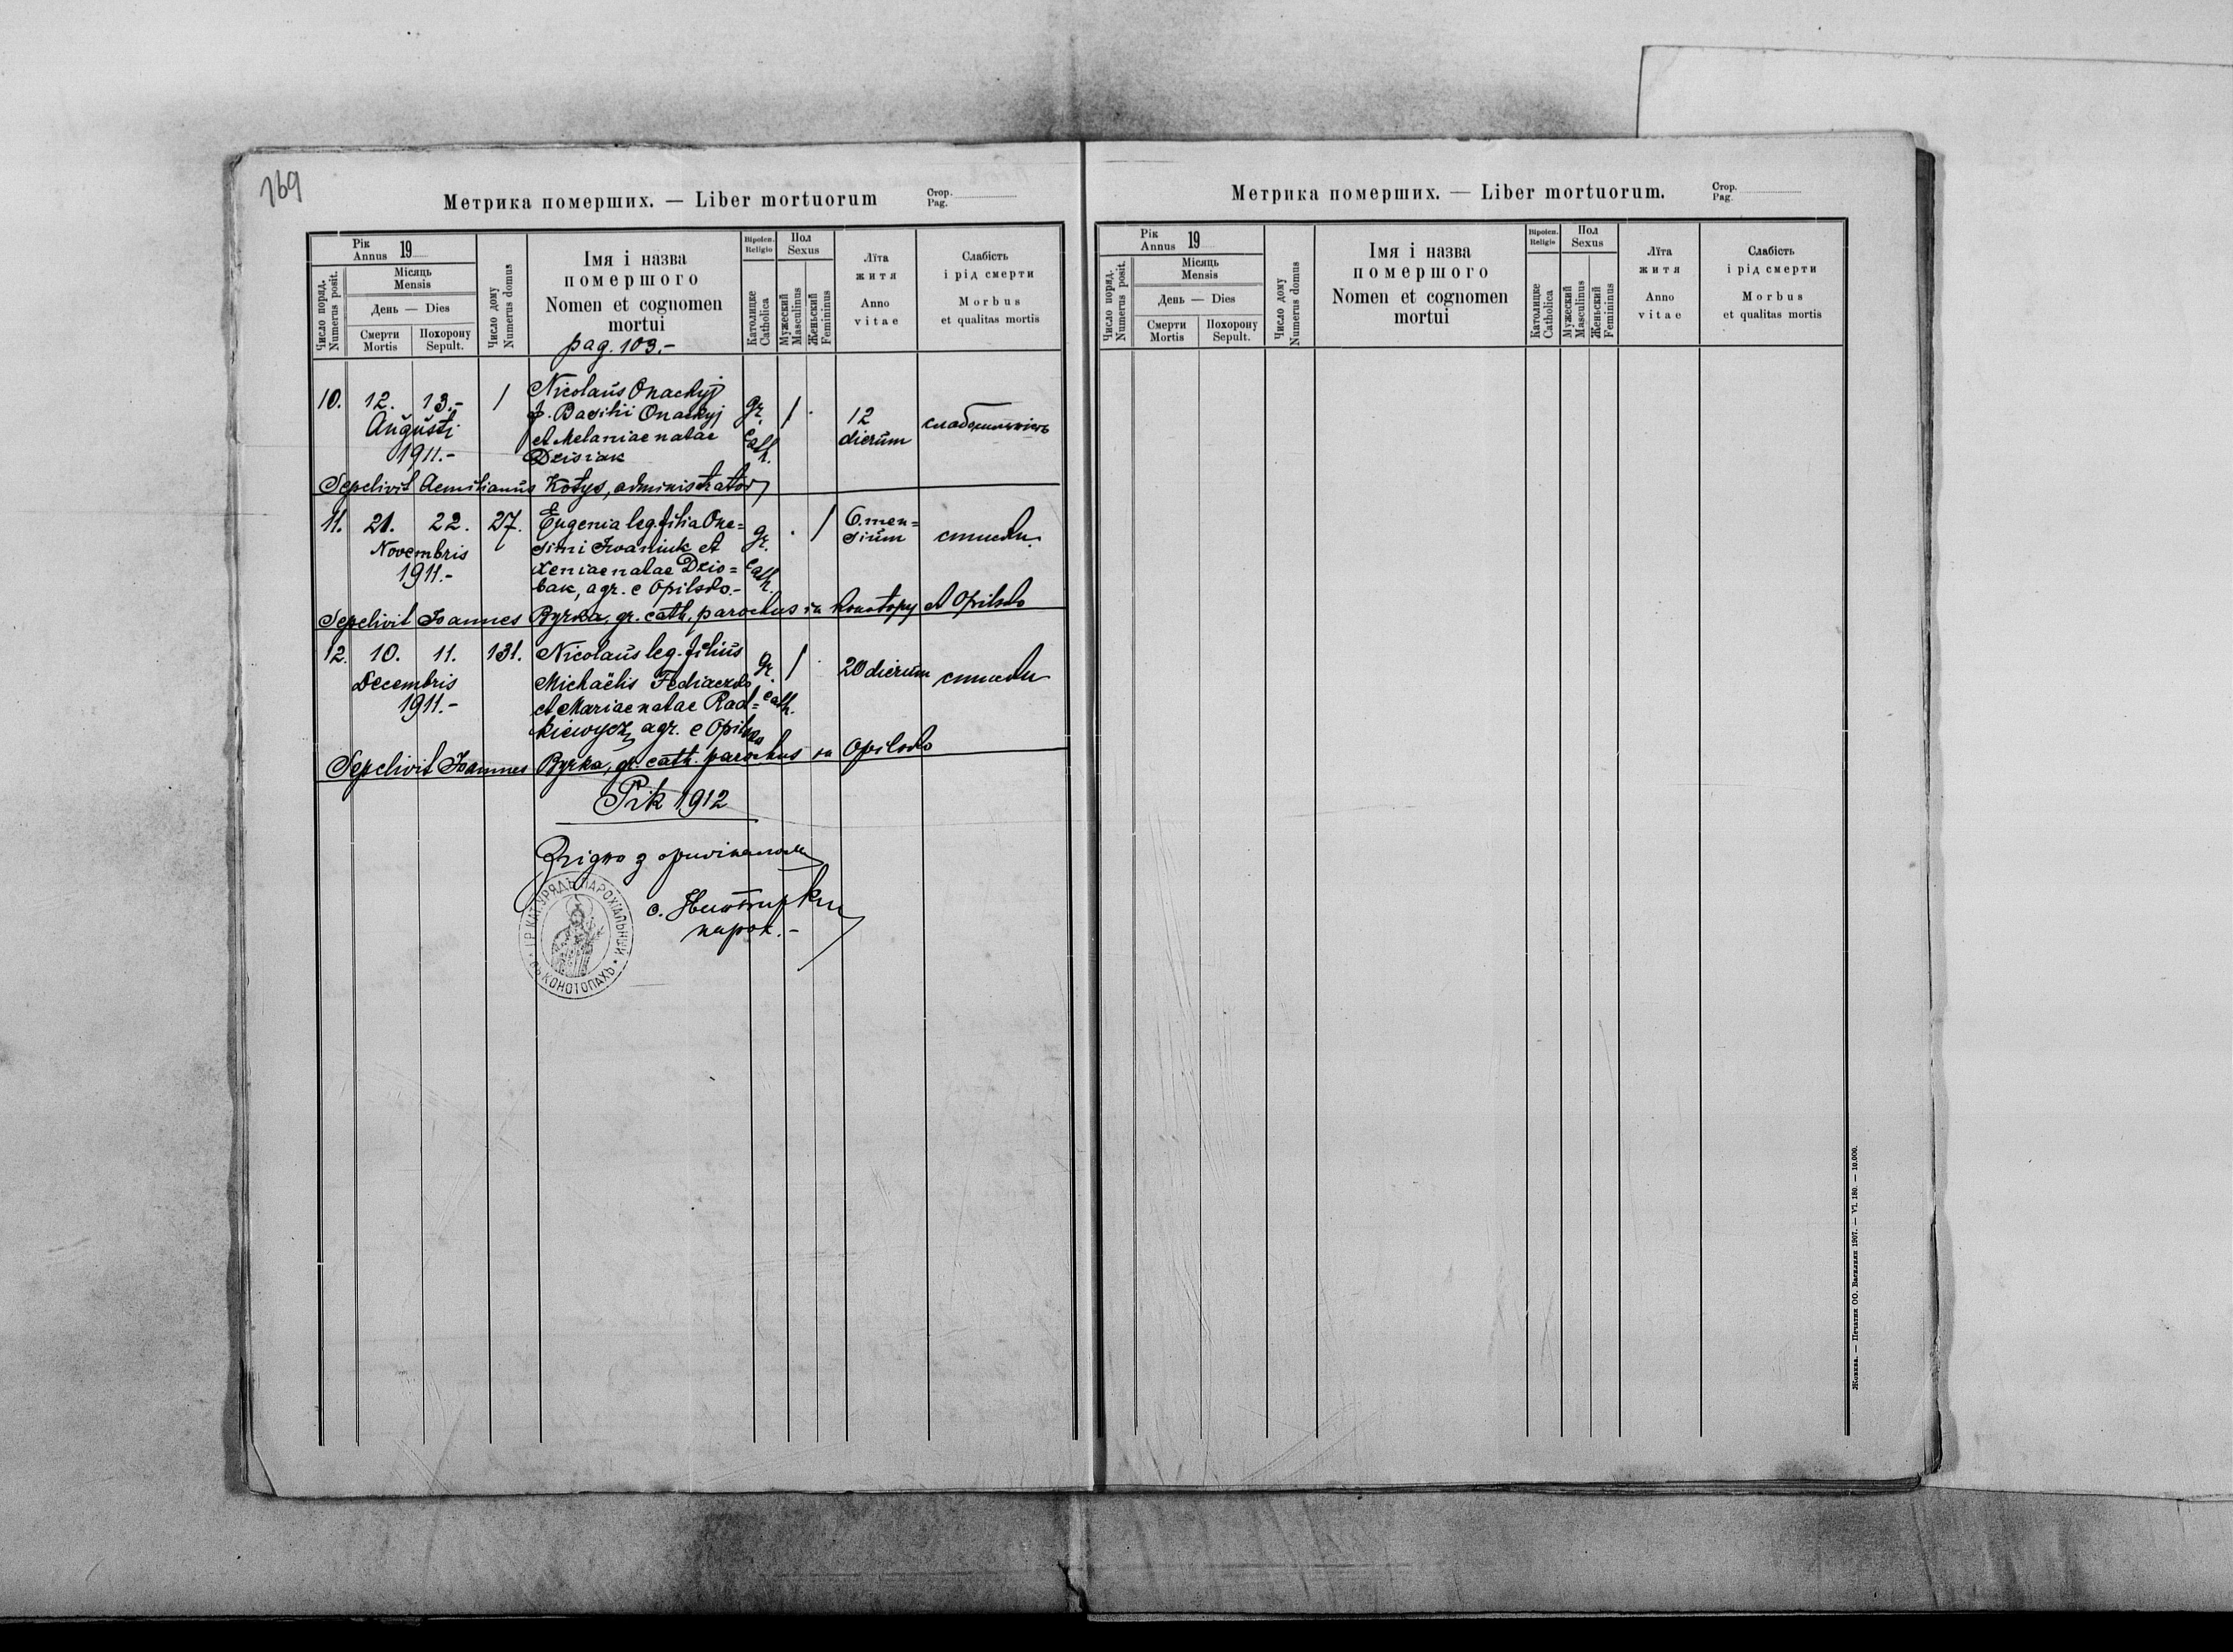 169
Метрика померших. — Liber mortuorum
Стор.
Pag.
Рік
Annus 19
Число поряд.
Numerus posit.
Місяць
Mensis
День — Dies
Смерти
Mortis
Похорону
Sepult.
Число дому
Numerus domus
Імя і назва
помершого
Nomen et cognomen
mortui
pag. 103.-
Віроісп.
Religio
Католицке
Catholica
Пол
Sexus
Мужеский
Masculinus
Женьский
Femininus
Лїта
житя
Anno
vitae
Слабість
і рід смерти
Morbus
et qualitas mortis
10. 12. 13.- 1 Nicolaus Onackyj gr. 1 . 12
Augusti f. Basilii Onackyj cath. dierum
1911.- et Melaniae natae
Dzisiak
Sepelivit Aemilianus Kotys, administrator
11. 21. 22. 27. Eugenia leg. filia One= gr. . 1 6. men=
Novembris simi Iwaniuk et cath. sium
1911.- Xeniae natae Dzio=
bak, agr. e Opilsko.-
Sepelivit Joannes Byrka, gr. cath. parochus in Konotopy et Opilsko
12. 10. 11. 131. Nicolaus leg. filius gr. 1 . 20 dierum
Decembris Michaëlis Fediaczko cath.
1911.- et Mariae natae Rad=
kiewycz, agr. e Opilsko
Sepelivit Joannes Byrka, gr. cath. parochus in Opilsko
Рік 1912
Згідно з оригіналом
о.
парох.-
ГР. КАТ. УРЯДЪ ПАРОХІАЛЬНЫЙ
ВЪ КОНОТОПАХЪ
Метрика померших. — Liber mortuorum.
Стор.
Pag.
Рік
Annus 19
Число поряд.
Numerus posit.
Місяць
Mensis
День — Dies
Смерти
Mortis
Похорону
Sepult.
Число дому
Numerus domus
Імя і назва
помершого
Nomen et cognomen
mortui
Віроісп.
Religio
Католицке
Catholica
Пол
Sexus
Мужеский
Masculinus
Женьский
Femininus
Лїта
житя
Anno
vitae
Слабість
і рід смерти
Morbus
et qualitas mortis
Жовква. — Печатня ОО. Василиян 1907. — VI. 180. — 10.000.